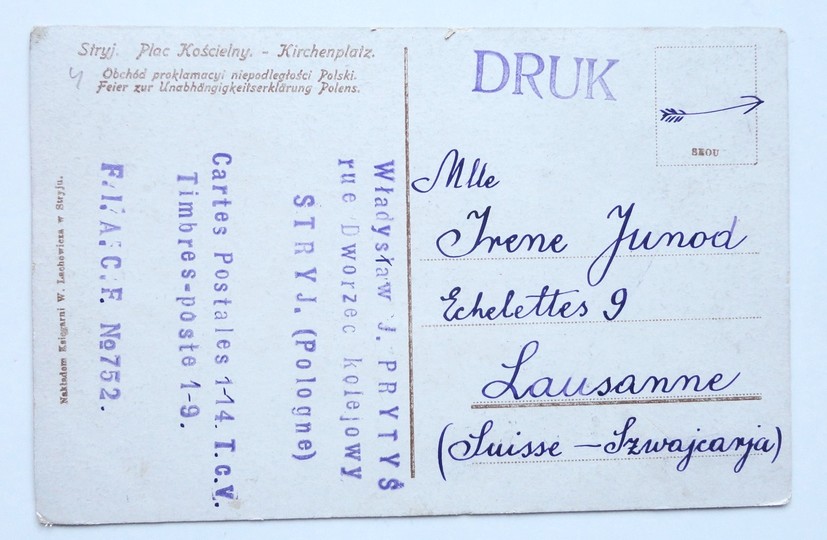 Stryj. Plac Kościelny. - Kirchenplatz.
Obchód proklamacyi niepodległości Polski.
Feier zur Unabhängigkeitserklärung Polens.
Nakładem Księgarni W. Lachowicza w Stryju.
Władysław J. PRYTYŚ
rue Dworzec kolejowy
STRYJ. (Pologne)
Cartes Postales 1-14. T.c.v.
Timbres=poste 1-9.
№752.
DRUK
SKOU
Mlle
Irene Junod
Echelettes 9
Lausanne
(Suisse — Szwajcarja)